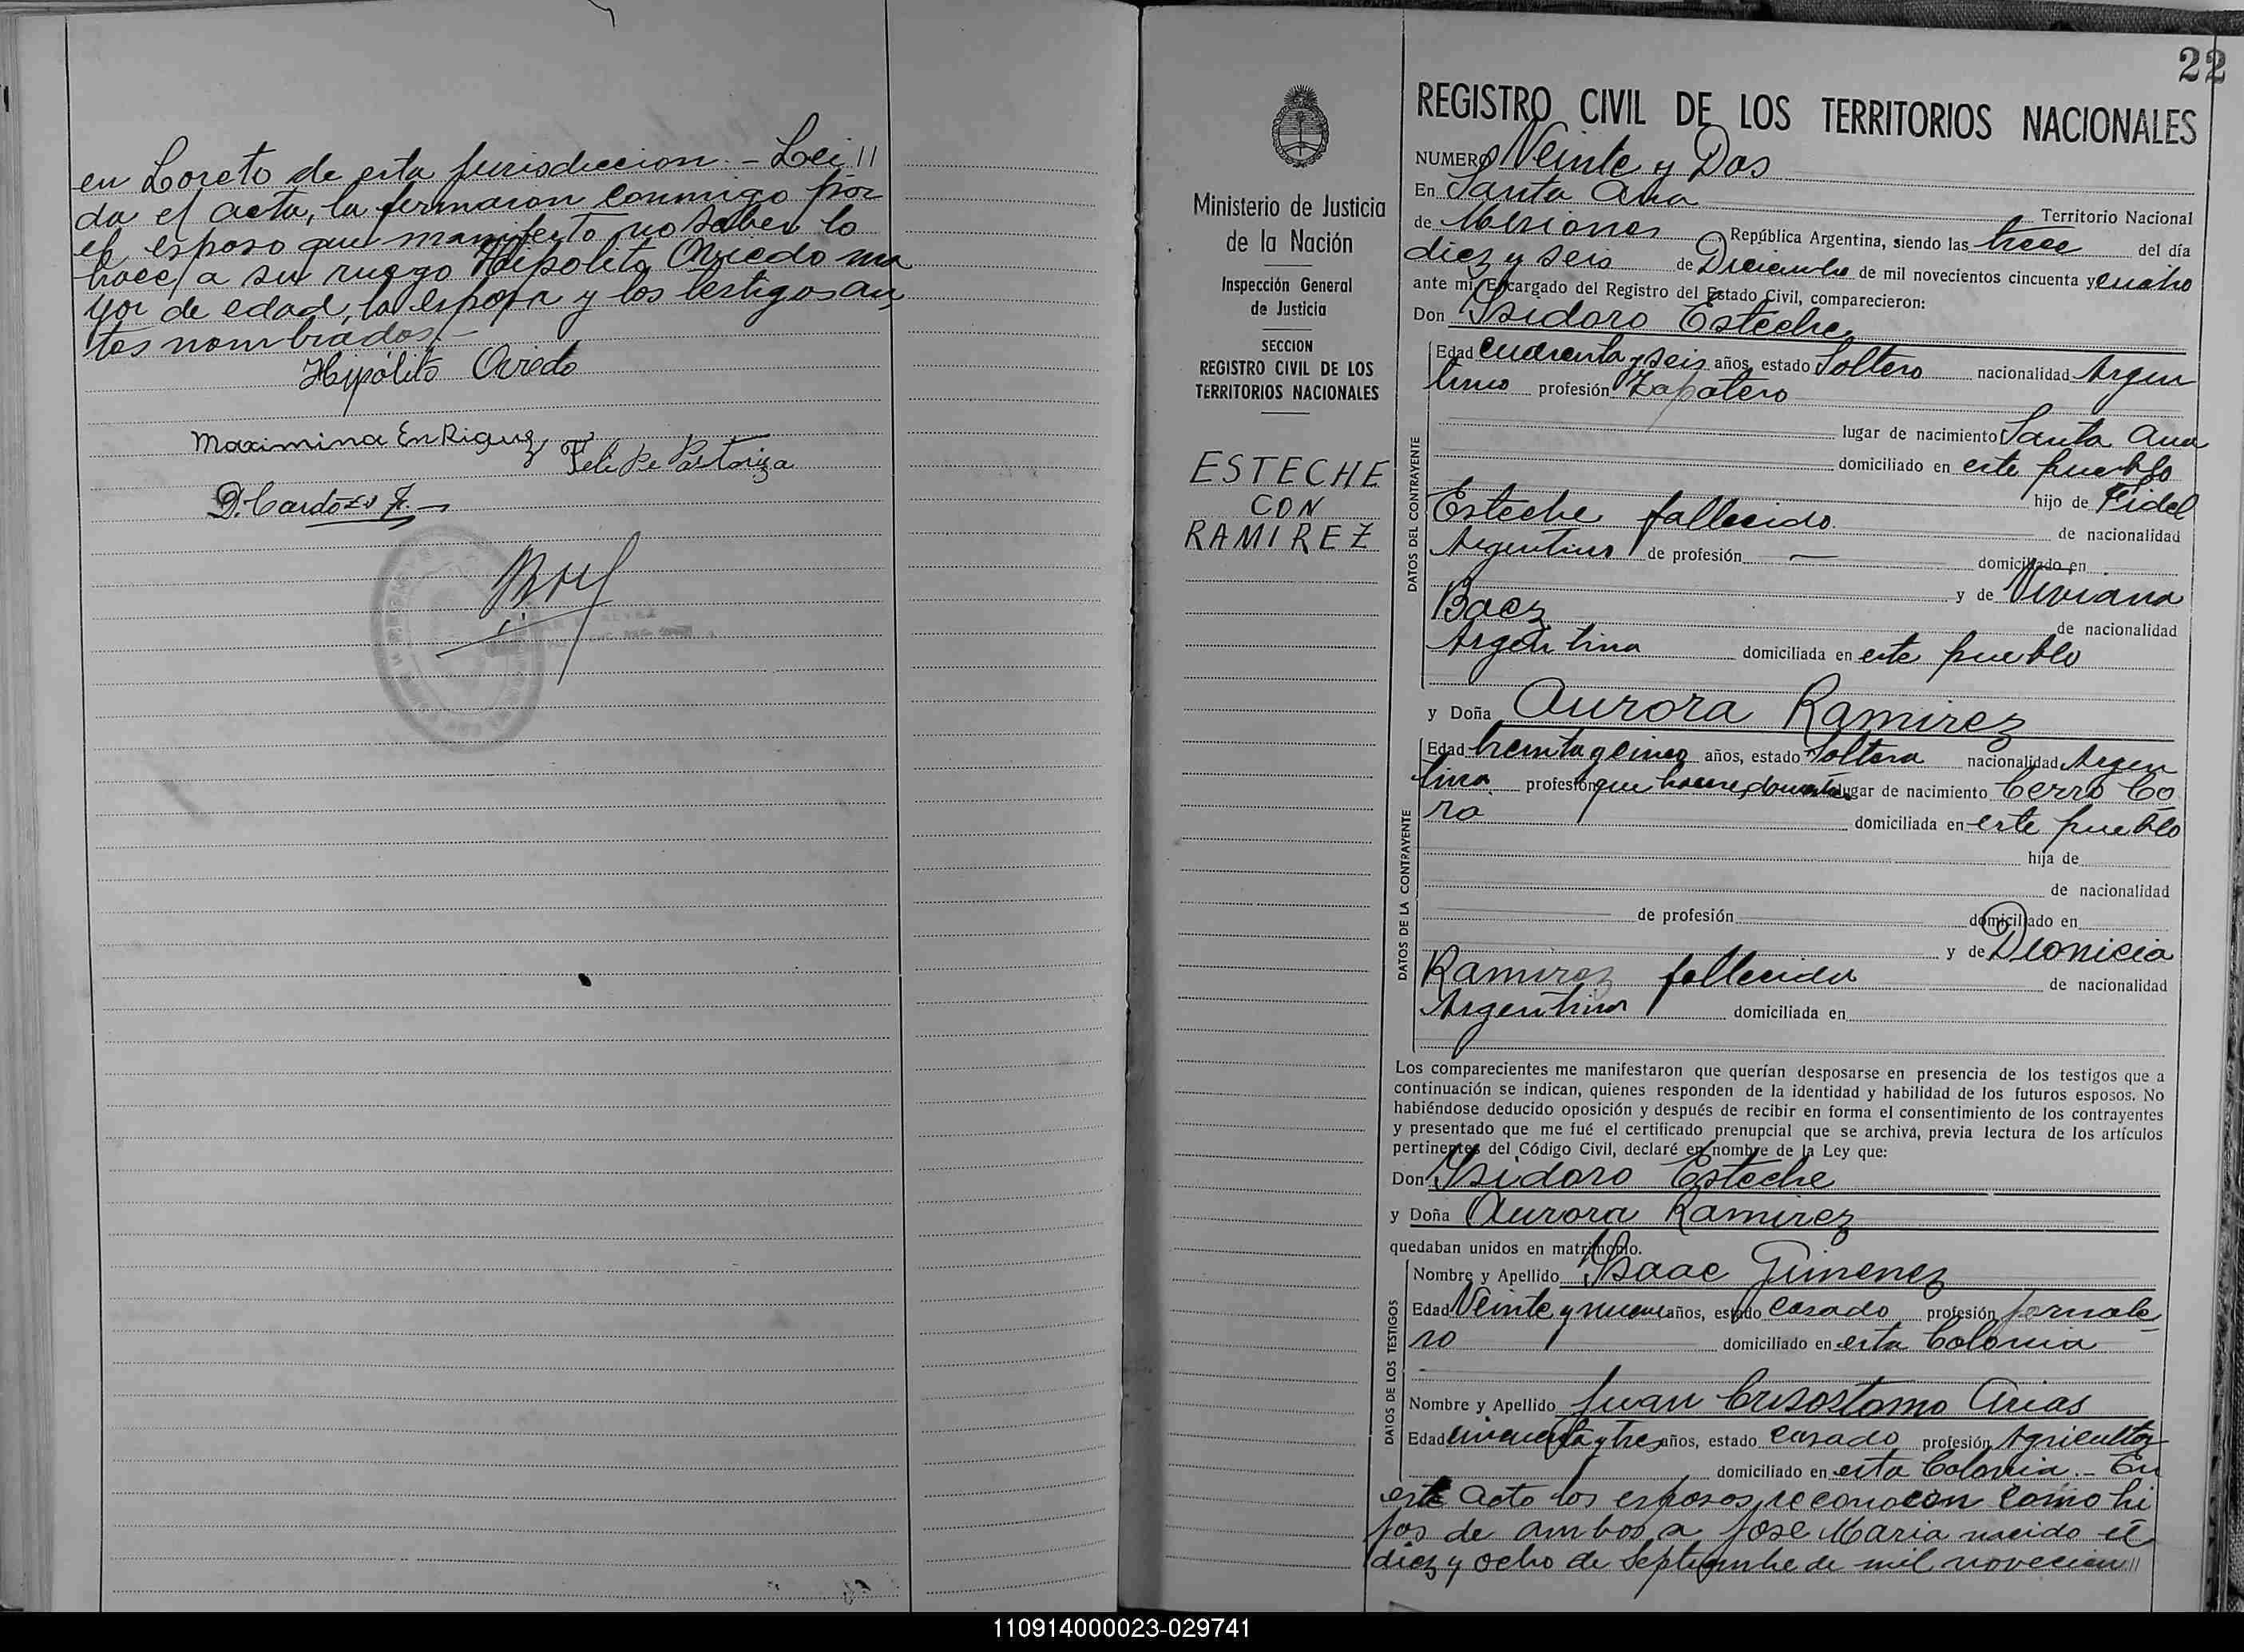 en Loreto de esta jurisdiccion.- Lei//
da el acta, la firmaron conmigo por
el esposo que manifesto no saber lo
hace, a su ruego Hipolito Oviedo ma
yor de edad, la esposa y los testigos an
tes nombrados.-
Hipólito Oviedo
Maximina Enriquez
Felipe Pastoriza
D. Cardozo F.
22
REGISTRO CIVIL DE LOS TERRITORIOS NACIONALES
NUMERO Veinte y Dos
En Santa Ana Territorio Nacional
de Misiones República Argentina, siendo las trece del día
diez y seis de Diciembre de mil novecientos cincuenta y cuatro
ante mí, Encargado del Registro del Estado Civil, comparecieron:
Don Isidoro Esteche
Edad cuarenta y seis años, estado Soltero nacionalidad Argen
tino profesión Zapatero
lugar de nacimiento Santa Ana
domiciliado en este pueblo
hijo de Fidel
Esteche fallecido de nacionalidad
Argentino de profesión — domiciliado en
y de Viviana
Baez de nacionalidad
Argentina domiciliada en este pueblo
DATOS DEL CONTRAYENTE
y Doña Aurora Ramirez
Edad treinta y cinco años, estado Soltera nacionalidad Argen
tina profesión que haceres domésticos lugar de nacimiento Cerro Co
ra domiciliada en este pueblo
hija de
de nacionalidad
de profesión domiciliado en
y de Dionicia
Ramirez fallecida de nacionalidad
Argentina domiciliada en
DATOS DE LA CONTRAYENTE
Los comparecientes me manifestaron que querían desposarse en presencia de los testigos que a
continuación se indican, quienes responden de la identidad y habilidad de los futuros esposos. No
habiéndose deducido oposición y después de recibir en forma el consentimiento de los contrayentes
y presentado que me fué el certificado prenupcial que se archiva, previa lectura de los artículos
pertinentes del Código Civil, declaré en nombre de la Ley que:
Don Isidoro Esteche
y Doña Aurora Ramirez
quedaban unidos en matrimonio.
Nombre y Apellido Isaac Gimenez
Edad Veinte y nueve años, estado casado profesión jornale
ro domiciliado en esta Colonia
Nombre y Apellido Juan Crisostomo Arias
Edad cincuenta y tres años, estado casado profesión Agricultor
domiciliado en esta Colonia.- En
DATOS DE LOS TESTIGOS
este acto los esposos reconocen como hi
jos de ambos a Jose Maria nacido el
diez y ocho de Septiembre de mil novecien//
Ministerio de Justicia
de la Nación
Inspección General
de Justicia
SECCION
REGISTRO CIVIL DE LOS
TERRITORIOS NACIONALES
ESTECHE
CON
RAMIREZ
110914000023-029741